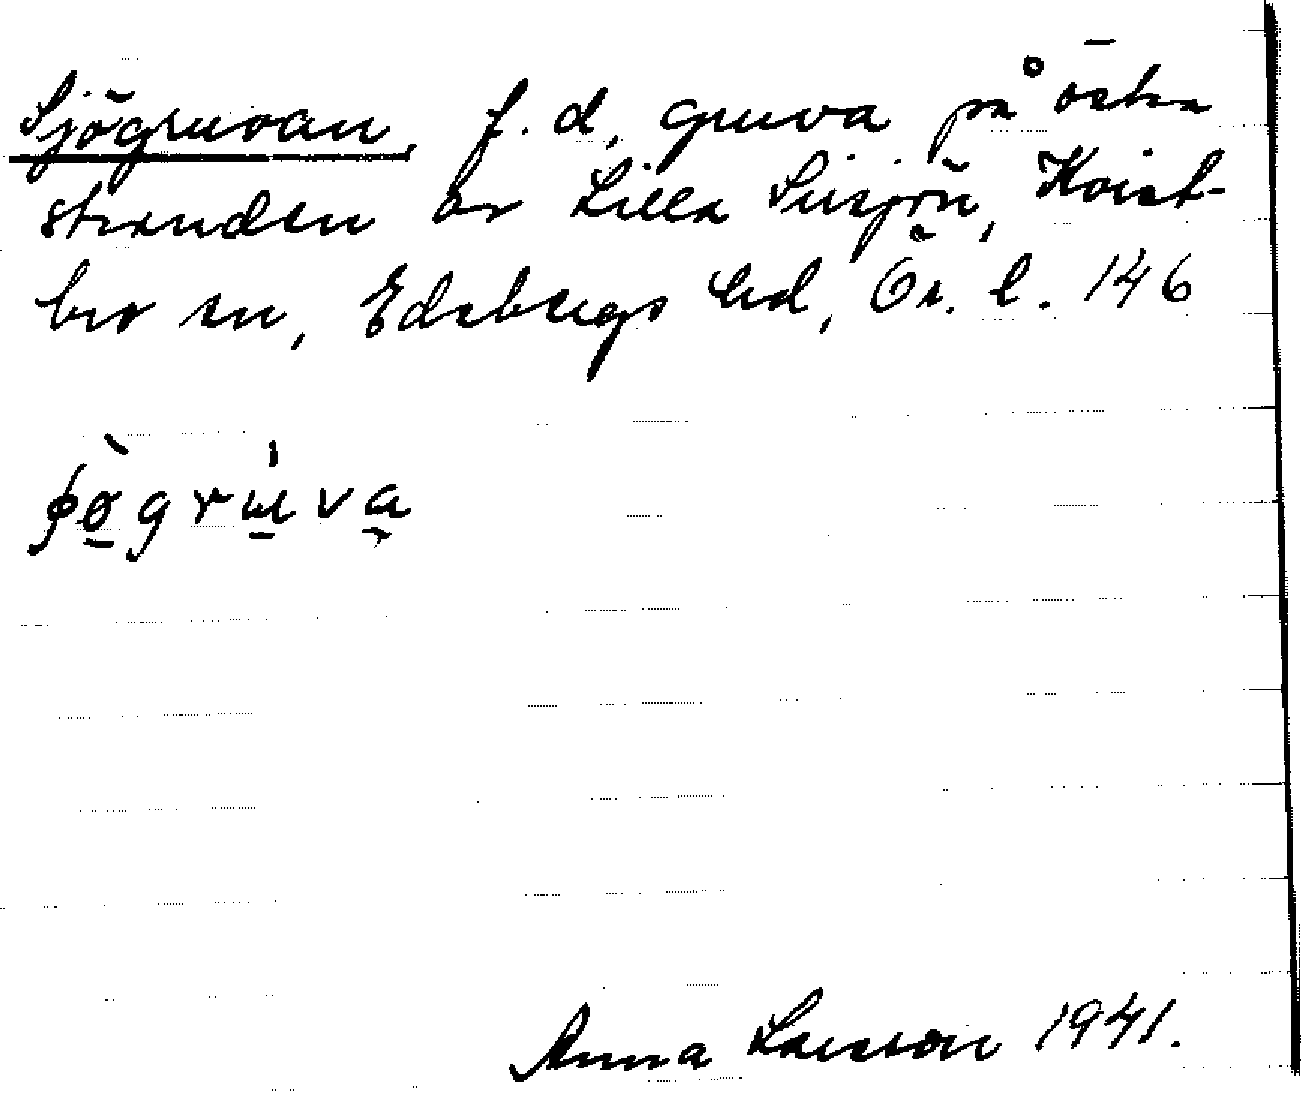 Sjögruvan, f. d. gruva på östra
stranden av Lilla Sirsjön, Kvist-
bro sn, Edsbergs hd, Ör. l. 146
ʃø̀gruva
Anna Larsson 1941.